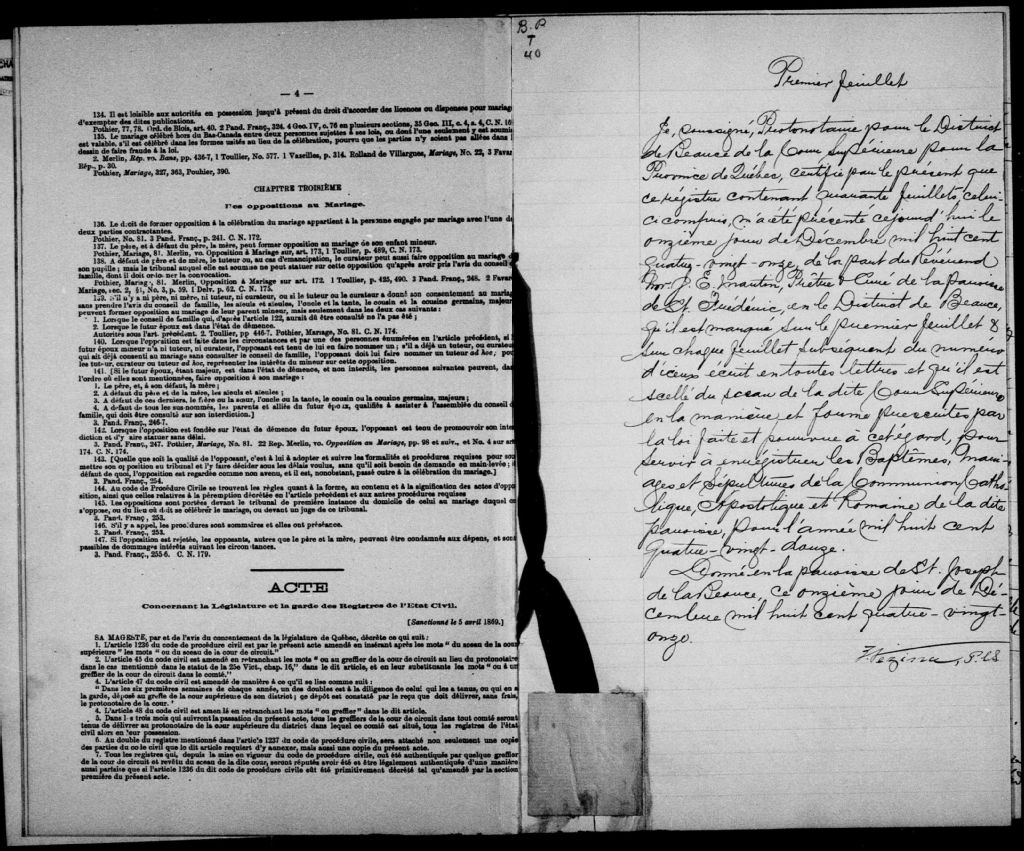 — 4 —
134. Il est loisible aux autorités en possession jusqu'à présent du droit d'accorder des licences ou dispenses pour mariage
d'exempter des dites publications.
Pothier, 77, 78. Ord. de Blois, art. 40. 2 Pand. Franç., 324. 4 Geo. IV, c. 76 en plusieurs sections, 35 Geo. III, c. 4, s. 4, C. N.
135. Le mariage célébré hors du Bas-Canada entre deux personnes sujettes à ses lois, ou dont l'une seulement y est soumi
est valable, s'il est célébré dans les formes usités au lieu de la célébration, pourvu que les parties n'y soient pas allées dans l
dessein de faire fraude à la loi.
2. Merlin, Rép. vo. Bans, pp. 436-7, 1 Toullier, No. 577. 1 Vazeilles, p. 314. Rolland de Villargues, Mariage, No. 22, 3 Favar
Rép., p. 30.
Pothier, Mariage, 327, 363, Pouhier, 390.
CHAPITRE TROISIÈME
Des oppositions au Mariage.
136. Le droit de former opposition à la célébration du mariage appartient à la personne engagée par mariage avec l'une d
deux parties contractantes.
Pothier, No. 81. 3 Pand. Franç., p. 241. C. N. 172.
137. Le père, et à défaut du père, la mère, peut former opposition au mariage de son enfant mineur.
Pothier, Mariage, 81. Merlin, vo. Opposition à Mariage, sur art. 173, 1 Toullier, p. 489, C. N. 173.
138. A défaut de père et de mère, le tuteur, ou au cas d'émancipation, le curateur peut aussi faire opposition au mariage d
son pupille; mais le tribunal auquel elle est soumise ne peut statuer sur cette opposition qu'après avoir pris l'avis du conseil d
famille, dont il doit ordonner la convocation.
Pothier, Mariage, 81. Merlin, Opposition à Mariage sur art. 172. 1 Toullier, p. 425, 490. 3 Pand. Franç., 248. 2 Favar
Mariage, sec. 2, §1, No. 3, p. 59. 1 Delv. p. 62. C. N. 175.
139. S'il n'y a ni père, ni mère, ni tuteur, ni curateur, ou si le tuteur ou le curateur a donné son consentement au mariag
sans prendre l'avis du conseil de famille, les aïeuls et aïeules, l'oncle et la tante, le cousin et la cousine germains, majeur
peuvent former opposition au mariage de leur parent mineur, mais seulement dans les deux cas suivants :
1. Lorsque le conseil de famille qui, d'après l'article 122, aurait dû être consulté ne l'a pas été ;
2. Lorsque le futur époux est dans l'état de démence.
Autorités sous l'art. précédent. 2. Toullier, pp 446-7. Pothier, Mariage, No. 81. C. N. 174.
140. Lorsque l'opposition est faite dans les circonstances et par une des personnes énumérées en l'article précédent, si l
futur époux mineur n'a ni tuteur, ni curateur, l'opposant est tenu de lui en faire nommer un ; s'il a déjà un tuteur, ou curateu
qui ait déjà consenti au mariage sans consulter le conseil de famille, l'opposant doit lui faire nommer un tuteur ad hoc, pou
les tuteur, curateur ou tuteur ad hoc, représenter les intérêts du mineur sur cette opposition.
141. [Si le futur époux, étant majeur, est dans l'état de démence, et non interdit, les personnes suivantes peuvent, dan
l'ordre où elles sont mentionnées, faire opposition à son mariage :
1. Le père, et, à son défaut, la mère ;
2. A défaut du père et de la mère, les aïeuls et aïeules ;
3. A défaut de ces derniers, le frère ou la sœur, l'oncle ou la tante, le cousin ou la cousine germains, majeurs ;
4. A défaut de tous les sus-nommés, les parents et alliés du futur époux, qualifiés à assister à l'assemblée du conseil d
famille, qui doit être consulté sur son interdiction.]
3. Pand. Franç., 246-7.
142. Lorsque l'opposition est fondée sur l'état de démence du futur époux, l'opposant est tenu de promouvoir son inter
diction et d'y faire statuer sans délai.
3. Pand. Franç., 247. Pothier, Mariage, No. 81. 22 Rep. Merlin, vo. Opposition au Mariage, pp. 98 et suiv., et No. 4 sur art
174. C. N. 174.
143. [Quelle que soit la qualité de l'opposant, c'est à lui à adopter et suivre les formalités et procédures requises pour sou
mettre son opposition au tribunal et l'y faire décider sous les délais voulus, sans qu'il soit besoin de demande en main-levée ;
défaut de quoi, l'opposition est regardée comme non avenu, et il est, nonobstant, passé outre à la célébration du mariage.]
3. Pand. Franç., 254.
144. Au code de Procédure Civile se trouvent les règles quant à la forme, au contenu et à la signification des actes d'oppo
sition, ainsi que celles relatives à la péremption décrétée en l'article précédent et aux autres procédures requises
145. Les oppositions sont portées devant le tribunal de première instance du domicile de celui au mariage duquel o
s'oppose, ou du lieu où doit se célébrer le mariage, ou devant un juge de ce tribunal.
3. Pand. Franç., 253.
146. S'il y a appel, les procédures sont sommaires et elles ont préséance.
3. Pand. Franç., 253.
147. Si l'opposition est rejetée, les opposants, autres que le père et la mère, peuvent être condamnés aux dépens, et sont
passibles de dommages intérêts suivant les circonstances.
3. Pand. Franç., 255-6. C. N. 179.
ACTE
Concernant la Législature et la garde des Registres de l'Etat Civil.
[Sanctionné le 5 avril 1869.]
SA MAGESTÉ, par et de l'avis du consentement de la législature de Québec, décrète ce qui suit :
1. L'article 1236 du code de procédure civil est par le présent acte amendé en insérant après les mots " du sceau de la cour
supérieure " les mots " ou du sceau de la cour de circuit."
2. L'article 45 du code civil est amendé en retranchant les mots " ou au greffier de la cour de circuit au lieu du protonotaire
dans le cas mentionné dans le statut de la 25e Vict., chap. 16," dans le dit article, et en leur substituant les mots " ou à un
greffier de la cour de circuit dans le comté."
3. L'article 47 du code civil est amendé de manière à ce qu'il se lise comme suit :
" Dans les six premières semaines de chaque année, un des doubles est à la diligence de celui qui les a tenus, ou qui en a
la garde, déposé au greffe de la cour supérieure de son district ; ce dépôt est constaté par le reçu que doit délivrer, sans frais,
le protonotaire de la cour."
4. L'article 48 du code civil est amendé en retranchant les mots " ou greffier " dans le dit article.
5. Dans les trois mois qui suivront la passation du présent acte, tous les greffiers de la cour de circuit dans tout comté seront
tenus de délivrer au protonotaire de la cour supérieure du district dans lequel ce comté est situé, tous les registres de l'état
civil alors en leur possession.
6. Au double du registre mentionné dans l'article 1237 du code de procédure civile, sera attaché non seulement une copie
des parties du code civil que le dit article requiert d'y annexer, mais aussi une copie du présent acte.
7. Tous les registres qui, depuis la mise en vigueur du code de procédure civile, ont été authentiqués par quelque greffier
de la cour de circuit et revêtu du sceau de la dite cour, seront réputés avoir été et être légalement authentiqués d'une manière
aussi parfaite que si l'article 1236 du dit code de procédure civile eût été primitivement décrété tel qu'amendé par la section
première du présent acte.
B. P
T
40
Premier feuillet
Je, soussigné, Protonotaire pour le District
de Beauce de la Cour supérieure pour la
Province de Québec, certifie par le présent que
ce régistre contenant quarante feuillets, celui-
ci compris, m'a été présenté ce jourd'hui le
onzième jour de Décembre mil huit cent
quatre-vingt-onze, de la part du Révérend
Mr. J. E. Martin, Prêtre & Curé de la paroisse
de St. Frédéric, en le District de Beauce,
qu'il est marqué sur le premier feuillet &
sur chaque feuillet subséquent du numéro
d'iceux écrit en toutes lettres et qu'il est
scellé du sceau de la dite Cour Supérieure
en la manière et forme prescrites par
la loi faite et pourvue à cet égard, pour
servir à enrégistrer les Baptêmes, Mari-
ages et Sépultures de la Communion Catho-
lique, Apostolique et Romaine de la dite
paroisse, pour l'année mil huit cent
quatre-vingt-douze.
Donné en la paroisse de St. Joseph
de la Beauce, ce onzième jour de Dé-
cembre mil huit cent quatre-vingt-
onze.
Vézina, P.C.S.